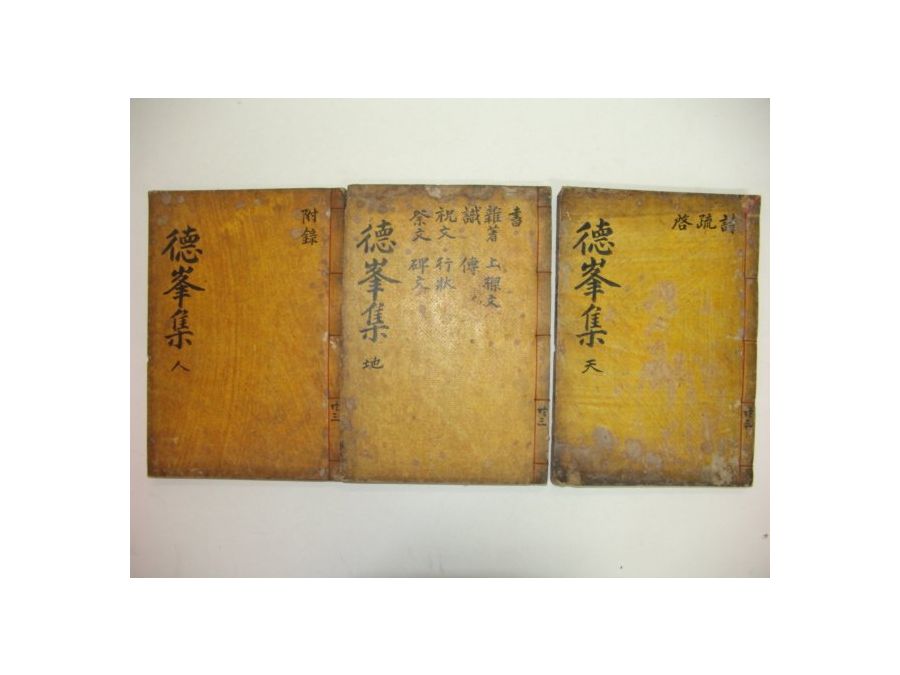 詩 疏 啓
德峯集 天
共三
書
雜著 上樑文
識 傳
祝文 行狀
祭文 碑文
德峯集 地
共三
附錄
德峯集 人
共三